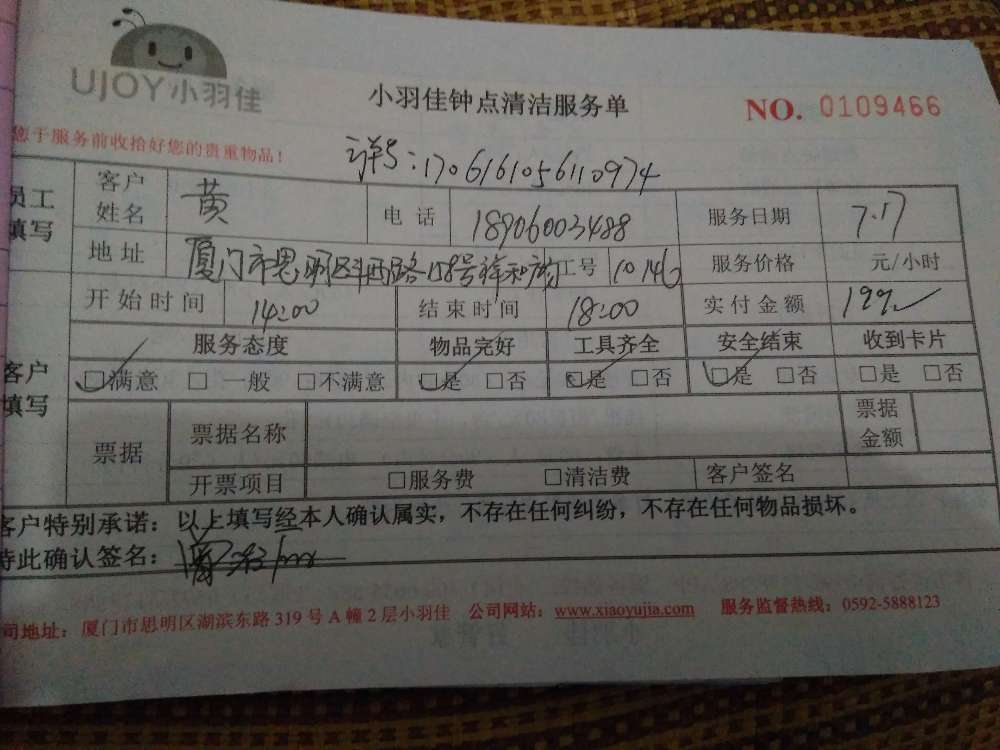 UJOY小羽佳
小羽佳钟点清洁服务单
NO. 0109466
您于服务前收拾好您的贵重物品!
单号:1706161056110974
员工填写
客户姓名 黄 电话 18906003488 服务日期 7.17
地址 厦门市思明区 路158号祥和 工号 10146 服务价格 元/小时
开始时间 14:00 结束时间 18:00 实付金额 199
客户填写
服务态度 物品完好 工具齐全 安全结束 收到卡片
☑满意 □一般 □不满意 ☑是 □否 ☑是 □否 ☑是 □否 □是 □否
票据 票据名称 票据金额
开票项目 □服务费 □清洁费 客户签名
客户特别承诺:以上填写经本人确认属实,不存在任何纠纷,不存在任何物品损坏。
特此确认签名:
司地址:厦门市思明区湖滨东路319号A幢2层小羽佳 公司网站:www.xiaoyujia.com 服务监督热线:0592-5888123